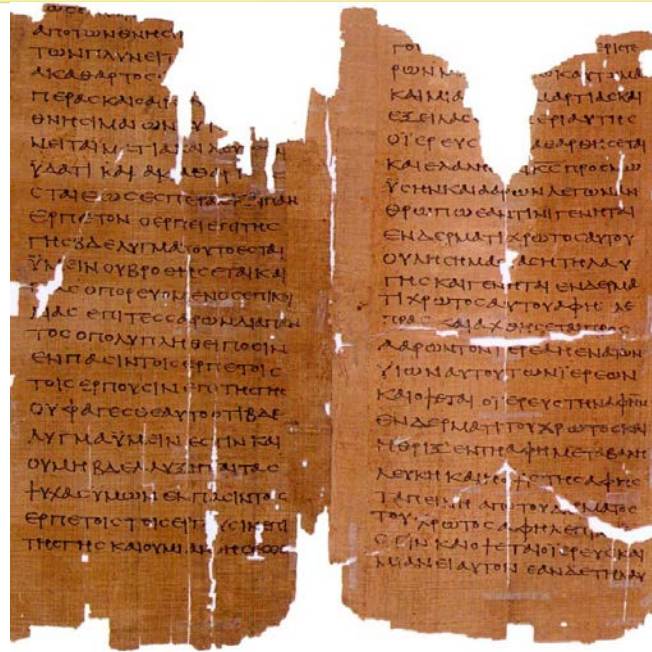 ΑΠΟΤΩΝΘΝΗϹΙ
ΤΩΝΠΛΥΝΕΙΤ
ΑΚΑΘΑΡΤΟϹ
ΠΕΡΑϹΚΑΙΟΑΙΡ
ΘΝΗϹΙΜΑΙΩΝ
ΝΕΙΤΑΙΜΑΤΙΑΚΑΙΛΟΥ
ΫΔΑΤΙ ΚΑΙ ΑΚΑΘΑΡΤ
ϹΤΑΙΕΩϹΕϹΠΕΡΑϹ ΠΑΝ
ΕΡΠΕΤΟΝ ΟΕΡΠΕΙΕΠΙΤΗϹ
ΓΗϹΒΔΕΛΥΓΜΑΤΟΥΤΟΕϹΤΑΙ
ΫΜΕΙΝΟΥΒΡΟΘΗϹΕΤΑΙΚΑΙ
ΠΑϹΟΠΟΡΕΥΟΜΕΝΟϹΕΠΙΚΟΙ
ΛΙΑϹ ΕΠΙΤΕϹϹΑΡΩΝΔΙΑΠΑΝ
ΤΟϹΟΠΟΛΥΠΛΗΘΕΙΠΟϹΙΝ
ΕΝΠΑϹΙΝΤΟΙϹΕΡΠΕΤΟΙϹ
ΤΟΙϹΕΡΠΟΥϹΙΝΕΠΙΤΗϹΓΗϹ
ΟΥΦΑΓΕϹΘΕΑΥΤΟΟΤΙΒΔΕ
ΛΥΓΜΑΫΜΕΙΝΕϹΤΙΝΚΑΙ
ΟΥΜΗΒΔΕΛΛΥΞΗΤΑΙΤΑϹ
ΨΥΧΑϹΥΜΩΝΕΝΠΑϹΙΝΤΟΙϹ
ΕΡΠΕΤΟΙϹΤΟΙϹΕΡΠΟΥϹΙΝΕΠΙ
ΤΗϹΓΗϹΚΑΙΟΥΜΙΑΝΘΗϹΕϹΘΕ
ΓΟΥ ΕΡΙϹΤΕ
ΡΩΝΝ ΩΚΑΥΤΩΜΑ
ΚΑΙΜΙΑ ΜΑΡΤΙΑϹΚΑΙ
ΕΞΕΙΛΑϹ ΕΡΙΑΥΤΗϹ
ΟΪΕΡΕΥϹ ΑΘΑΡΘΗϹΕΤΑΙ
ΚΑΙΕΛΑΛΗ ΚϹΠΡΟϹΜΩ
ΫϹΗΝΚΑΙΑΑΡΩΝΛΕΓΩΝΑΝ
ΘΡΩΠΩΕΑΝΤΙΝΙΓΕΝΗΤΑΙ
ΕΝΔΕΡΜΑΤΙΧΡΩΤΟϹΑΥΤΟΥ
ΟΥΛΗϹΗΜΑϹΙΑϹΗΤΗΛΑΥ
ΓΗϹΚΑΙΓΕΝΗΤΑΙΕΝΔΕΡΜΑ
ΤΙΧΡΩΤΟϹΑΥΤΟΥΑΦΗ ΛΕ
ΠΡΑϹ ΚΑΙΑΧΘΗϹΕΤΑΙΠΡΟϹ
ΑΑΡΩΝΤΟΝΪΕΡΕΑΗΕΝΑΤΩΝ
ΫΙΩΝΑΥΤΟΥΤΩΝΪΕΡΕΩΝ
ΚΑΙΟΨΕΤΑΙΟΪΕΡΕΥϹΤΗΝΑΦΗΝ
ΕΝΔΕΡΜΑΤΙΤΟΥΧΡΩΤΟϹΚΑΙ
ΗΘΡΙΞΕΝΤΗΑΦΗΜΕΤΑΒΑΛΗ
ΛΕΥΚΗΚΑΙΗΟΨΙϹΤΗϹΑΦΗϹ
ΤΑΠΕΙΝΗΑΠΟΤΟΥΔΕΡΜΑΤΟϹ
ΤΟΥΧΡΩΤΟϹΑΦΗΛΕΠΡΑϹ
ΕϹΤΙΝΚΑΙΟΨΕΤΑΙΟΪΕΡΕΥϹΚΑΙ
ΜΙΑΝΕΙΑΥΤΟΝΕΑΝΔΕΤΗΛΑΥ